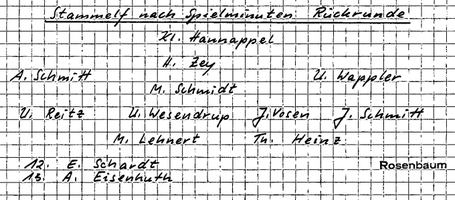 Stammelf nach Spielminuten Rückrunde
Kl. Hannappel
H. Zey
A. Schmitt U. Wappler
M. Schmidt
U. Reitz U. Wesendrup J. Vosen J. Schmitt
M. Lehnert Th. Heinz
12. E. Schardt Rosenbaum
13. A. Eisenhuth